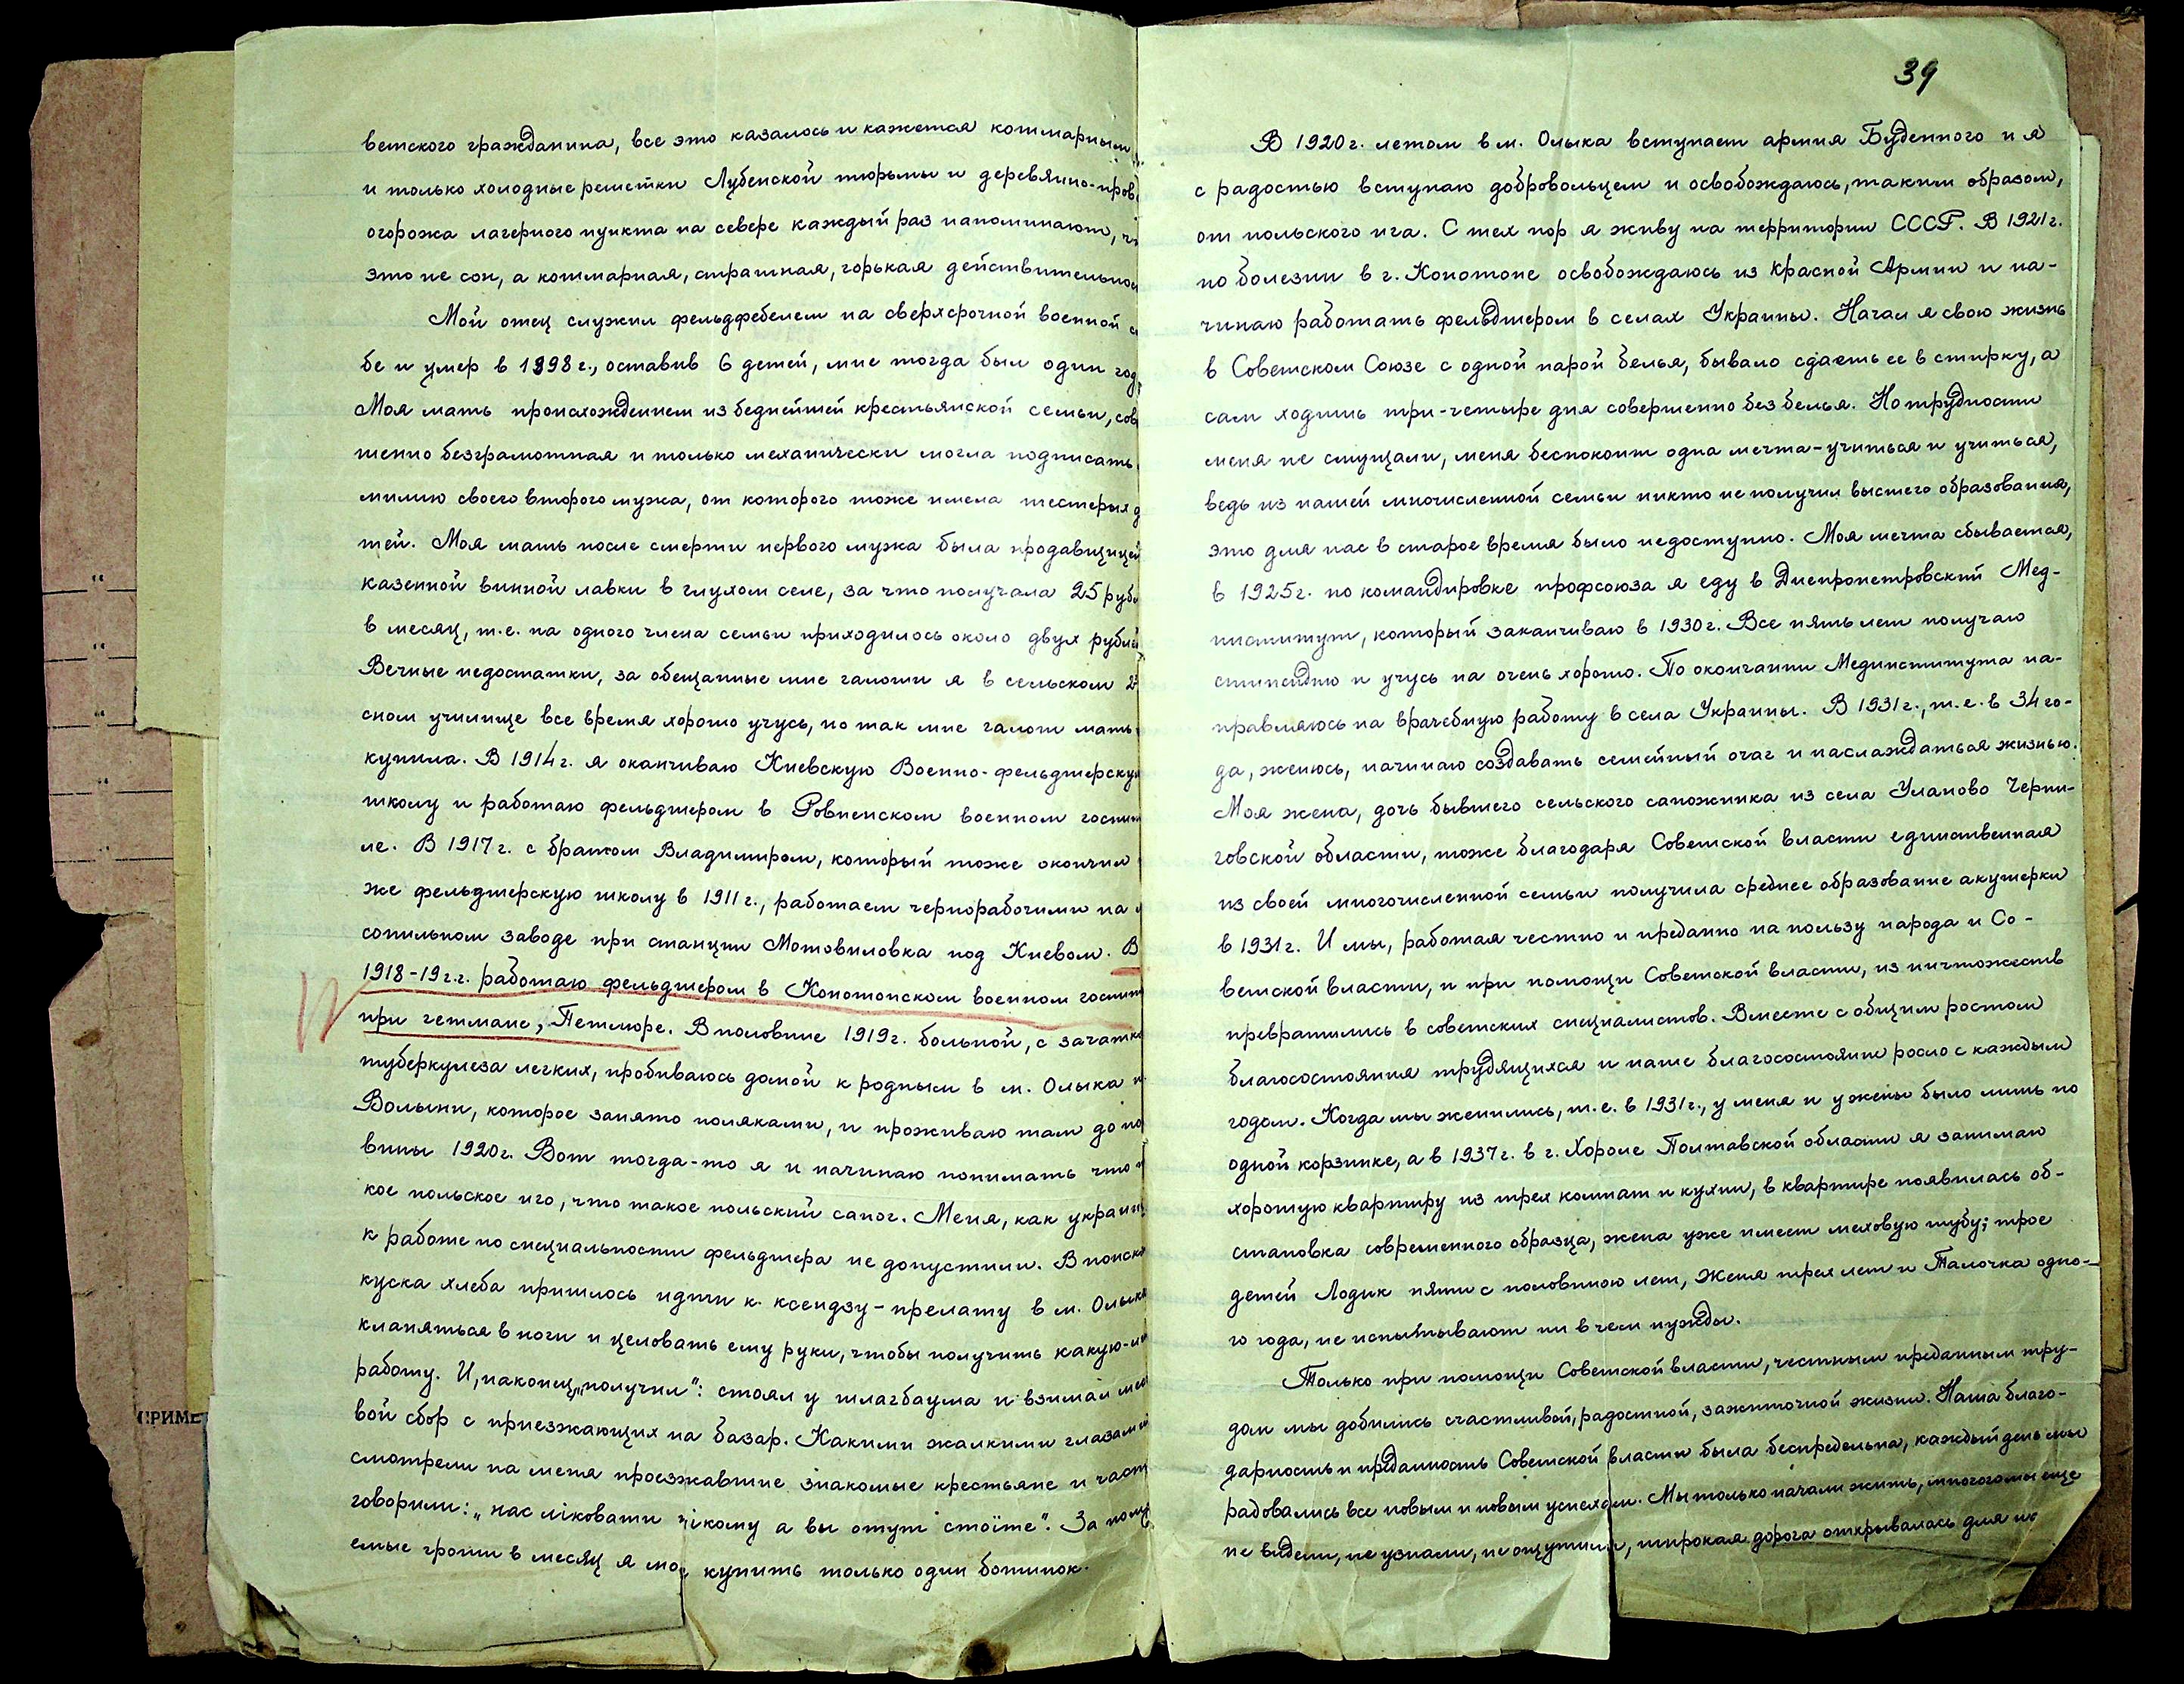 ветского гражданина, все это казалось и кажется кошмарным
и только холодные решетки Лубенской тюрьмы и деревянно-пров
огорожа лагерного пункта на севере каждый раз напоминают,
это не сон, а кошмарная, страшная, горькая действительнос
Мой отец служил фельдфебелем на сверхсрочной военной с
бе и умер в 1898 г., оставив 6 детей, мне тогда был один год,
Моя мать происхождением из беднейшей крестьянской семьи, сов
шенно безграмотная и только механически могла подписать
милию своего второго мужа, от которого тоже имела шестерых д
тей. Моя мать после смерти первого мужа была продавщицей
казенной винной лавки в глухом селе, за что получала 25 рубл
в месяц, т.е. на одного члена семьи приходилось около двух рублей
Вечные недостатки, за обещанные мне галоши я в сельском 2х
сном училище все время хорошо учусь, но так мне галош мать
купила. В 1914 г. я оканчиваю Киевскую Военно-фельдшерскую
школу и работаю фельдшером в Ровненском военном госпит
ле. В 1917 г. с братом Владимиром, который тоже окончил
же фельдшерскую школу в 1911 г., работаем чернорабочими на
сопильном заводе при станции Мотовиловка под Киевом. В
1918-19 г.г. работаю фельдшером в Конотопском военном госпит
при гетмане, Петлюре. В половине 1919 г. больной, с зачатка
туберкулеза легких, пробиваюсь домой к родным в м. Олыка н
Волыни, которое занято поляками, и проживаю там до по
вины 1920 г. Вот тогда-то я и начинаю понимать что
кое польское иго, что такое польский сапог. Меня, как украин
к работе по специальности фельдшера не допустили. В поиска
куска хлеба пришлось идти к ксендзу-прелату в м. Олыка
кланяться в ноги и целовать ему руки, чтобы получить какую-ни
работу. И, наконец, „получил": стоял у шлагбаума и взимал мес
вой сбор с приезжающих на базар. Какими жалкими глазами
смотрели на меня проезжавшие знакомые крестьяне и част
говорили: „нас ліковати нікому а вы отут стоїте". За полу
емые гроши в месяц я мог купить только один ботинок.
39
В 1920 г. летом в м. Олыка вступает армия Буденного и я
с радостью вступаю добровольцем и освобождаюсь, таким образом,
от польского ига. С тех пор я живу на территории СССР. В 1921 г.
по болезни в г. Конотопе освобождаюсь из Красной Армии и на-
чинаю работать фельдшером в селах Украины. Начал я свою жизнь
в Советском Союзе с одной парой белья, бывало сдаешь ее в стирку, а
сам ходишь три-четыре дня совершенно без белья. Но трудности
меня не смущали, меня беспокоит одна мечта-учиться и учиться,
ведь из нашей многисленной семьи никто не получил высшего образования,
это для нас в старое время было недоступно. Моя мечта сбывается,
в 1925 г. по командировке профсоюза я еду в Днепропетровский Мед-
институт, который заканчиваю в 1930 г. Все пять лет получаю
стипендию и учусь на очень хорошо. По окончании Мединститута на-
правляюсь на врачебную работу в села Украины. В 1931 г., т.е. в 34 го-
да, женюсь, начинаю создавать семейный очаг и наслаждаться жизнью.
Моя жена, дочь бывшего сельского сапожника из села Уланово Черни-
говской области, тоже благодаря Советской власти единственная
из своей многочисленной семьи получила среднее образование акушерки
в 1931 г. И мы, работая честно и преданно на пользу народа и Со-
ветской власти, и при помощи Советской власти, из ничтожеств
превратились в советских специалистов. Вместе с общим ростом
благосостояния трудящихся и наше благосостояние росло с каждым
годом. Когда мы женились, т.е. в 1931 г., у меня и у жены было лишь по
одной корзинке, а в 1937 г. в г. Хороле Полтавской области я занимаю
хорошую квартиру из трех комнат и кухни, в квартире появилась об-
становка современного образца, жена уже имеет меховую шубу; трое
детей Лодик пяти с половиною лет, Женя трех лет и Талочка одно-
го года, не испытывают ни в чем нужды.
Только при помощи Советской власти, честным преданным тру-
дом мы добились счастливой, радостной, зажиточной жизни. Наша благо-
дарность и преданность Советской власти была беспредельна, каждый день мы
радовались все новым и новым успехам. Мы только начали жить, многого мы еще
не видели, не узнали, не ощутили, широкая дорога открывалась для на
ПРИМЕ